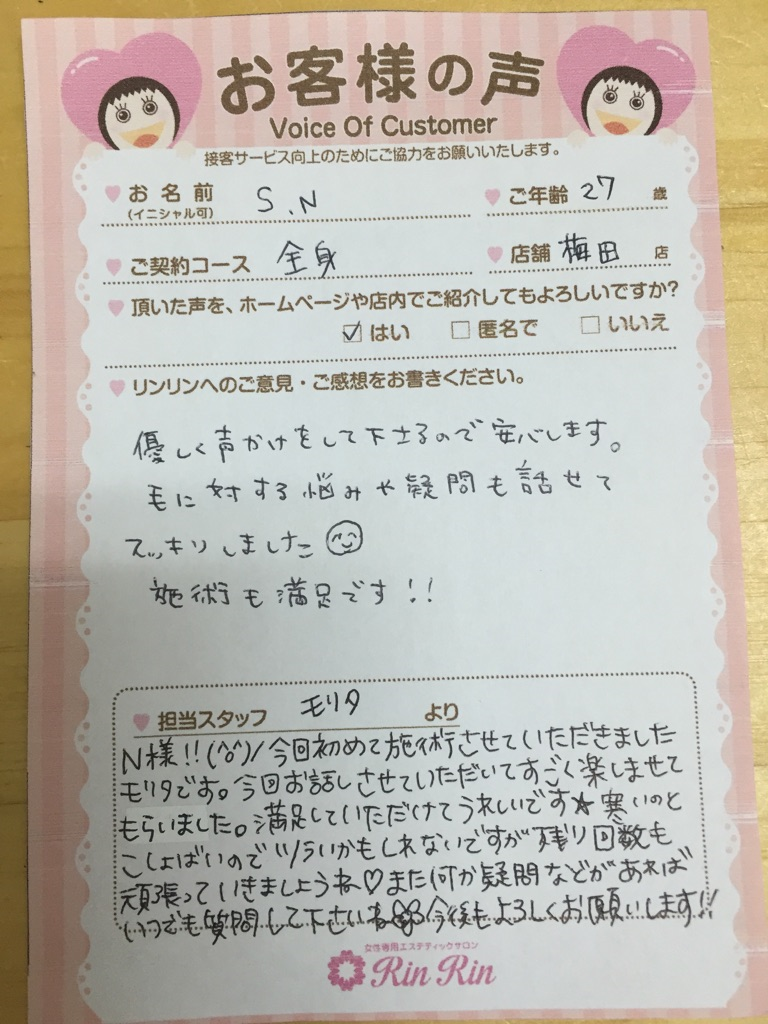 お客様の声
Voice Of Customer
接客サービス向上のためにご協力をお願いいたします。
お名前 S.N ご年齢 27 歳
(イニシャル可)
ご契約コース 全身 店舗 梅田 店
頂いた声を、ホームページや店内でご紹介してもよろしいですか?
☑ はい □ 匿名で □ いいえ
リンリンへのご意見・ご感想をお書きください。
優しく声かけをして下さるので安心します。
毛に対する悩みや疑問も話せて
スッキリしました
施術も満足です!!
担当スタッフ モリタ より
N様!!(^o^)/今回初めて施術させていただきました
モリタです。今回お話しさせていただいてすごく楽しませて
もらいました。満足していただけてうれしいです★寒いのと
こしょばいのでツライかもしれないですが残り回数も
頑張っていきましょうね♡また何か疑問などがあれば
いつでも質問して下さいね 今後もよろしくお願いします!!
女性専用エステティックサロン
Rin Rin